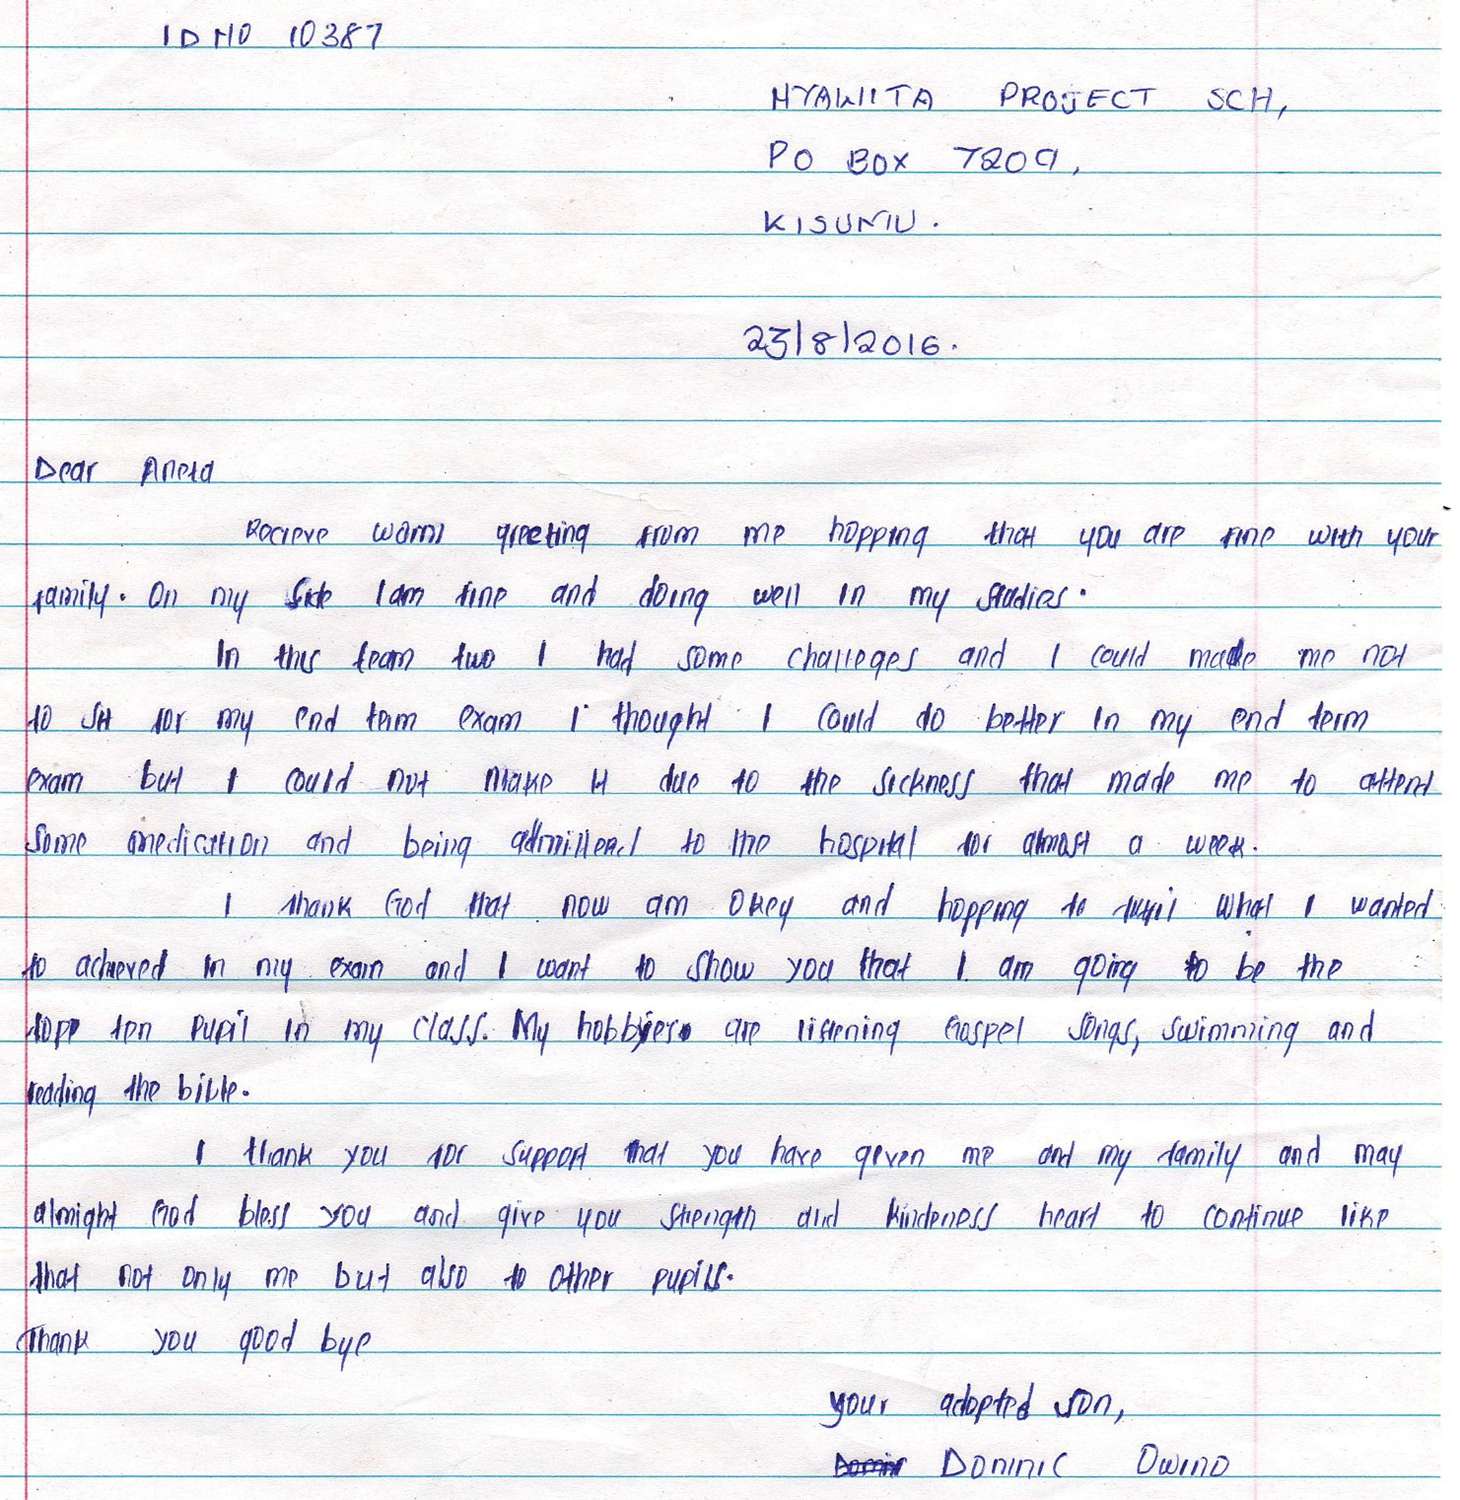 ID NO 10387
NYAWITA PROJECT SCH,
PO BOX 7209,
KISUMU.
23/8/2016.
Dear Aneta
Recieve warm greeting from me hopping that you are fine with your
family. On my side I am fine and doing well in my studies.
In this team two I had some challeges and I could made me not
to sit for my end term exam I thought I could do better in my end term
exam but I could not make it due to the sickness that made me to attent
some medication and being admitted to the hospital for almost a week.
I thank God that now am Okey and hopping to fulfil what I wanted
to achieved in my exam and I want to show you that I am going to be the
topp ten pupil in my class. My hobbies are listening Gospel songs, swimming and
reading the bible.
I thank you for support that you have given me and my family and may
almight God bless you and give you strength and kindeness heart to continue like
that not only me but also to other pupils.
Thank you good bye
your adopted son,
Dominic Owino